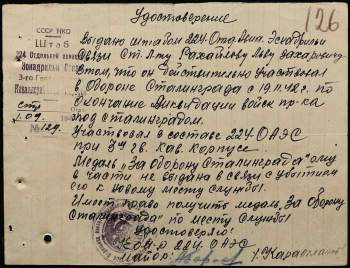 126
Удостоверение
СССР НКО
Штаб
224 Отдельной
Эскадрильи Связи
3-го Гвард.
Кавалерий
1.09.
№ 129.
Выдано штабом 224 Отд. Авиа. Эскадрильи
Связи Ст. л-ту Рахайлову Льву Захаровичу
в том, что он действительно участвовал
в обороне Сталинграда с 19.11.42 г. по
окончание ликвидации войск пр-ка
под Сталинградом.
Участвовал в составе 224 ОАЭС
при 3м гв. кав. корпусе.
Медаль „За оборону Сталинграда" ему
в части не выдана в связи с убытием
его к новому месту службы.
Имеет право получить медаль „За оборону
Сталинграда" по месту службы.
Удостоверяю:
К-р 224 ОАЭС
майор: